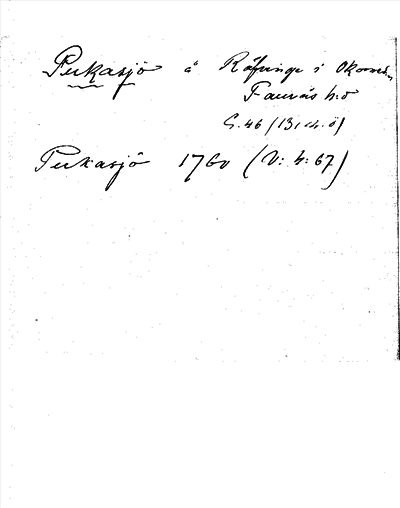 Pukasjö å Räfvinge i Okome,
Faurås h:d
G. 46 (13, ch. ö)
Pukasjö 1760 (V: 4: 67)